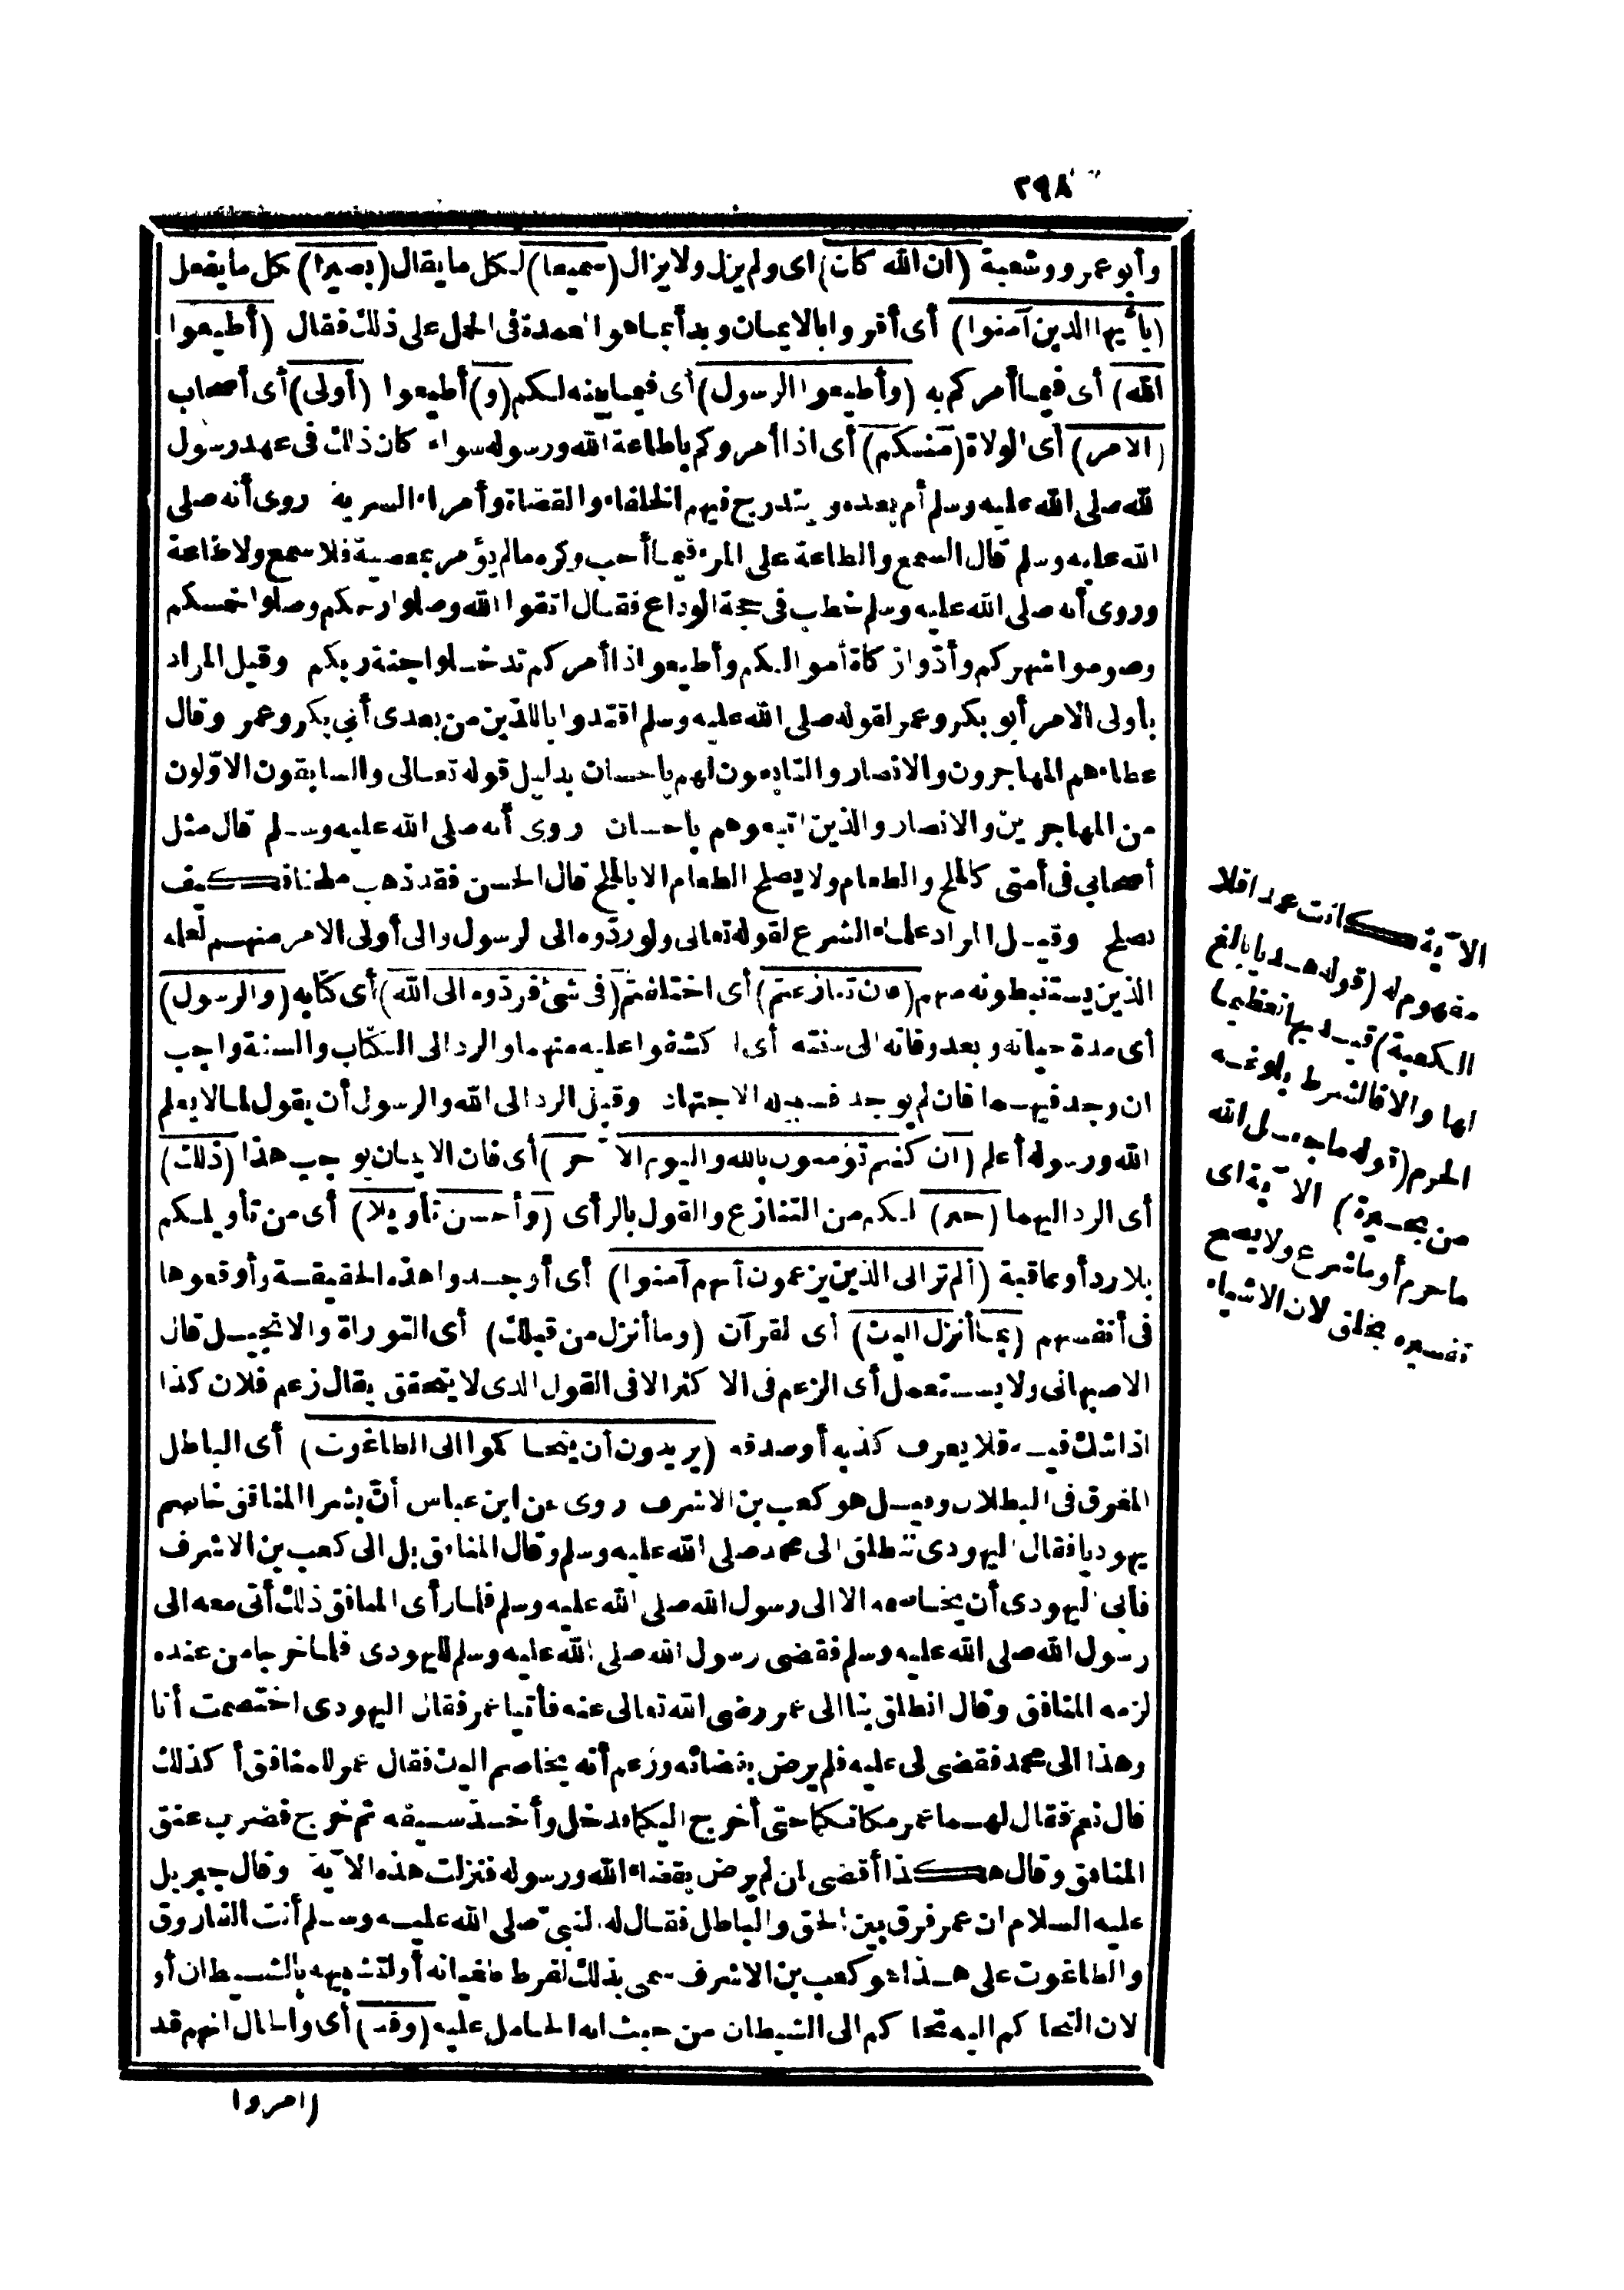 ٢٩٨
وأبو عمرو وشعبة (ان الله كان) اى ولم يزل ولا يزال (سميعا) لكل ما يقال (بصيرا) بكل ما يفعل
(يا أيها الذين آمنوا) أى أقروا بالايمان وبدأ بما هو العمدة فى الحمل على ذلك فقال (أطيعوا
الله) أى فيما أمركم به (وأطيعوا الرسول) أى فيما بينه لكم (و) أطيعوا (أولى) أى أصحاب
(الامر) أى الولاة (منكم) أى اذا أمروكم بطاعة الله ورسوله سواء كان ذلك فى عهد رسول
لله صلى الله عليه وسلم أم بعده ويندرج فيهم الخلفاء والقضاة وأمراء السرية روى أنه صلى
الله عليه وسلم قال السمع والطاعة على المرء فيما أحب وكره مالم يؤمر بمعصية فلا سمع ولا طاعة
وروى أنه صلى الله عليه وسلم خطب فى حجة الوداع فقال اتقوا الله وصلوا رحمكم وصلوا خمسكم
وصوموا شهركم وأدّوا زكاة أموالكم وأطيعوا ذا أمركم تدخلوا جنة ربكم وقيل المراد
بأولى الامر أبو بكر وعمر لقوله صلى الله عليه وسلم اقتدوا باللذين من بعدى أبي بكر وعمر وقال
عطاء هم المهاجرون والانصار والتابعون لهم باحسان بدليل قوله تعالى والسابقون الاوّلون
من المهاجرين والانصار والذين اتبعوهم باحسان روى أنه صلى الله عليه وسلم قال مثل
أصحابى فى أمتى كالملح والطعام ولا يصلح الطعام الا بالملح قال الحسن فقد ذهب ملحنا فكيف
نصلح وقيل المراد علماء الشرع لقوله تعالى ولو ردّوه الى لرسول والى أولى الامر منهم لعلمه
الذين يستنبطونه منهم (فان تنازعتم) أى اختلفتم (فى شئ فردّوه الى الله) أى كتابه (والرسول)
أى مدة حياته وبعد وفاته الى سنته أى اكشفوا عليه منهما والرد الى الكتاب والسنة واجب
ان وجد فيهما فان لم يوجد فسبيله الاجتهاد وقيل الرد الى الله والرسول أن يقول لما لا يعلم
الله ورسوله أعلم (ان كنتم تؤمنون بالله واليوم الآخر) أى فان الايمان يوجب هذا (ذلك)
أى الرد اليهما (خير) لكم من التنازع والقول بالرأى (وأحسن تأويلا) أى من تأويلكم
بلا رد أو عاقبة (ألم تر الى الذين يزعمون أنهم آمنوا) أى أوجدوا هذه الحقيقة وأوقعوها
فى أنفسهم (بما أنزل اليك) أى لقرآن (وما أنزل من قبلك) أى التوراة والانجيل قال
الاصبهانى ولا يستعمل أى الزعم فى الاكثر الا فى القول الذى لا يتحقق يقال زعم فلان كذا
اذا شك فيه فلا يعرف كذبه أو صدقه (يريدون أن يتحاكموا الى الطاغوت) أى الباطل
المغرق فى البطلان وقيل هو كعب بن الاشرف روى عن ابن عباس أنّ بشرا المنافق خاصم
يهوديا فقال اليهودى تنطلق الى محمد صلى الله عليه وسلم وقال المنافق بل الى كعب بن الاشرف
فأبى اليهودى أن يخاصمه الا الى رسول الله صلى الله عليه وسلم فلما رأى المنافق ذلك أتى معه الى
رسول الله صلى الله عليه وسلم فقضى رسول الله صلى الله عليه وسلم لليهودى فلما خرجا من عنده
لزمه المنافق وقال انطلق بنا الى عمر رضى الله تعالى عنه فأتيا عمر فقال اليهودى اختصمت أنا
وهذا الى محمد فقضى لى عليه فلم يرض بقضائه وزعم أنه يخاصم اليك فقال عمر للمنافق أكذلك
قال نعم فقال لهما عمر مكانكما حتى أخرج اليكما فدخل وأخذ سيفه ثم خرج فضرب عنق
المنافق وقال هكذا أقضى لمن لم يرض بقضاء الله ورسوله فنزلت هذه الآية وقال جبريل
عليه السلام ان عمر فرق بين الحق والباطل فقال له النبىّ صلى الله عليه وسلم أنت الفاروق
والطاغوت على هذا هو كعب بن الاشرف سمى بذلك لفرط طغيانه أو لتشبيهه بالشيطان أو
لان التحاكم اليه تحاكم الى الشيطان من حيث انه الحامل عليه (وقد) أى والحال انهم قد
(امروا
الآية كانت عمدا فلا
مفهوم له (قوله هديا بالغ
الكعبة) قيد بها تعظيما
لها والا فالشرط بلوغه
الحرم (قوله ما جعل الله
من بحيرة) الآية اى
ما حرم أو ما شرع ولا يصح
تفسيره بخلق لان الاشياء